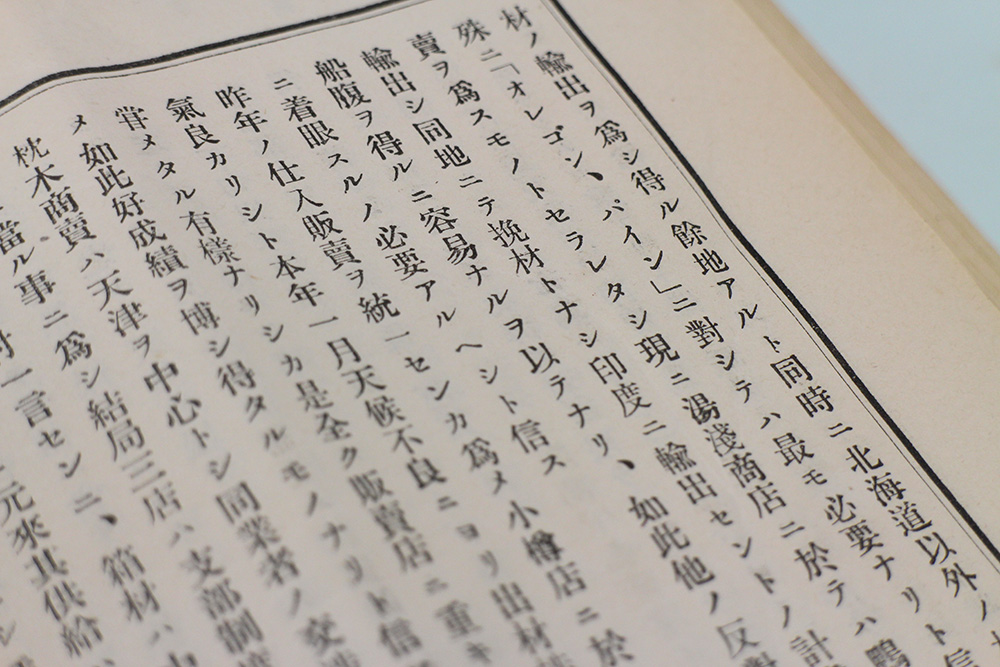 材ノ輸出ヲ爲シ得ル餘地アルト同時ニ北海道以外ノ
殊ニ「オレゴン、パイン」ニ對シテハ最モ必要ナリト信
賣ヲ爲スモノトセラレタシ現ニ湯淺商店ニ於テハ鴨
輸出シ同地ニテ挽材トナシ印度ニ輸出セントノ計
船腹ヲ得ルニ容易ナルヲ以テナリ、如此他ノ反對
ニ着眼スルノ必要アルヘシト信ス
昨年ノ仕入販賣ヲ統一センカ爲メ小樽店ニ於
氣良カリシト本年一月天候不良ニヨリ出材
甞メタル有樣ナリシカ是全ク販賣店ニ重キ
メ如此好成績ヲ博シ得タルモノナリト信
枕木商賣ハ天津ヲ中心トシ同業者ノ交
當ル事ニ爲シ結局三店ハ支部制
一言センニ、箱材ハ
元來其供給